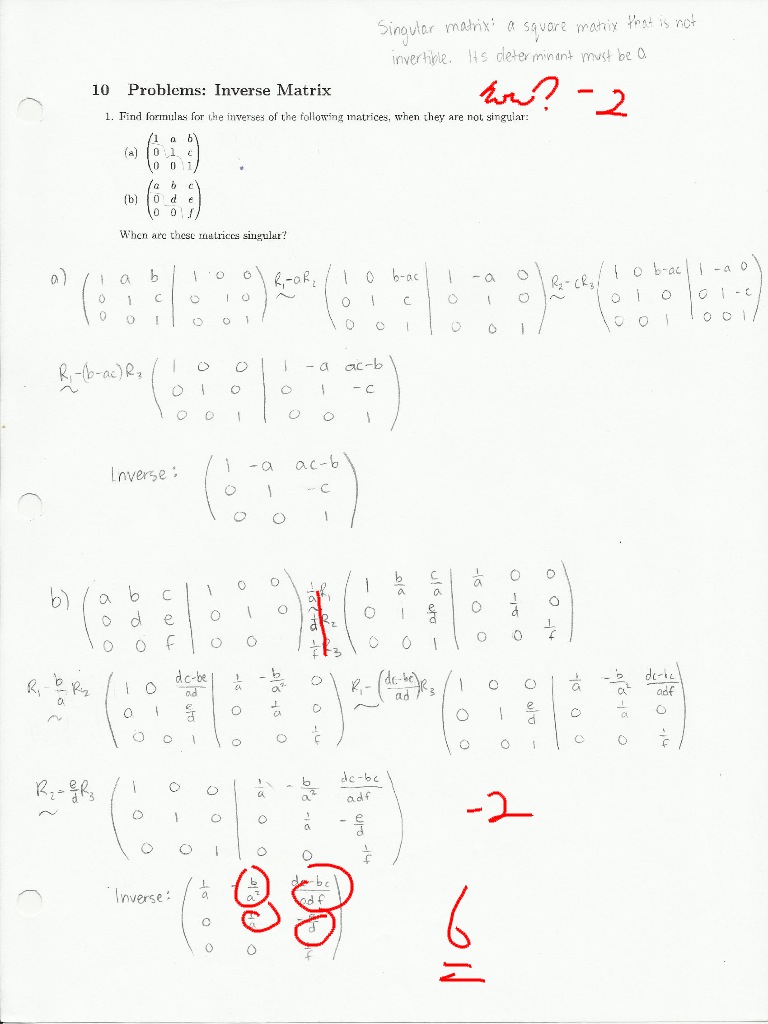 Singular matrix: a square matrix that is not
invertible. Its determinant must be 0
10 Problems: Inverse Matrix
? -2
1. Find formulas for the inverses of the following matrices, when they are not singular:
(a) (1 a b
0 1 c
0 0 1)
(b) (a b c
0 d e
0 0 f)
When are these matrices singular?
a) (1 a b | 1 0 0) R₁-aR₂ (1 0 b-ac | 1 -a 0) R₂-cR₃ (1 0 b-ac | 1 -a 0)
0 1 c | 0 1 0 ~ 0 1 c | 0 1 0 ~ 0 1 0 | 0 1 -c
0 0 1 | 0 0 1 0 0 1 | 0 0 1 0 0 1 | 0 0 1
R₁-(b-ac)R₃ (1 0 0 | 1 -a ac-b)
~ 0 1 0 | 0 1 -c
0 0 1 | 0 0 1
Inverse: (1 -a ac-b
0 1 -c
0 0 1)
b) (a b c | 1 0 0) 1/a R₁ (1 b/a c/a | 1/a 0 0)
0 d e | 0 1 0 1/d R₂ 0 1 e/d | 0 1/d 0
0 0 f | 0 0 1/f R₃ 0 0 1 | 0 0 1/f
R₁-b/a R₂ (1 0 dc-be/ad | 1/a -b/a² 0) R₁-(dc-be/ad)R₃ (1 0 0 | 1/a -b/a² dc-bc/adf)
~ 0 1 e/d | 0 1/a 0 ~ 0 1 e/d | 0 1/a 0
0 0 1 | 0 0 1/f 0 0 1 | 0 0 1/f
R₂-e/d R₃ (1 0 0 | 1/a -b/a² dc-bc/adf)
~ 0 1 0 | 0 1/a -e/d
0 0 1 | 0 0 1/f
-2
Inverse: (1/a -b/a² dc-bc/adf
0 1/a -e/d
0 0 1/f)
6